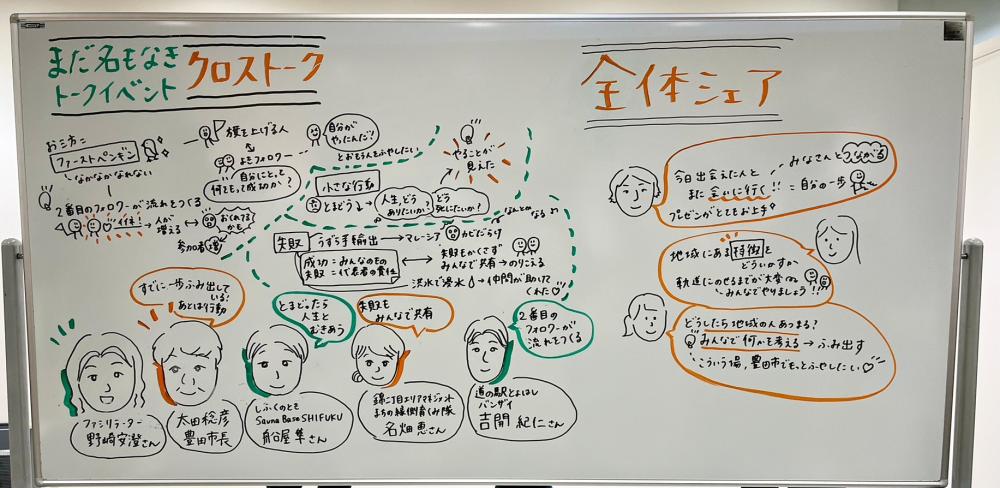 まだ名もなき
トークイベント
クロストーク
お三方に
ファーストペンギン
なかなかなれない
2番目のフォロワーが流れをつくる
一体!
人が
増える
おくれてるかも
参加者増
旗を上げる人
&
よきフォロワー
自分にとって
何をもって成功か?
自分が
やったんだ!
とおもう人をふやしたい
小さな行動
とまどう
人生、どう
ありたいか?
どう
死にたいか?
やることが
見えた
なんとかなる
失敗
うずら手輸出
マレーシア
カビだらけ
成功=みんなのもの
失敗=代表者の責任
失敗もかくさず
みんなで共有→のりこえる
洪水で浸水
仲間が助けて
くれた
すでに一歩ふみ出して
いる!
あとは行動
とまどったら
人生と
むきあう
失敗も
みんなで共有
2番目の
フォロワーが
流れをつくる
ファシリテーター
野崎安澄さん
太田稔彦
豊田市長
しふくのとき
Sauna Base SHIFUKU
舟谷屋 隼さん
錦二丁目エリアマネジメント
まちの縁側育くみ隊
名畑 恵さん
道の駅とよはし
バンザイ
吉開 紀仁さん
全体シェア
今日出会えた人と
また会いに行く!!
みなさんとつながる
=自分の一歩
プレゼンがとてもお上手
地域にある特徴を
どういかすか
軌道にのせるまでが大変
みんなでやりましょう!!
どうしたら地域の人あつまる?
みんなで何かを考える→ふみ出す
こういう場、豊田市でもっとふやしたい